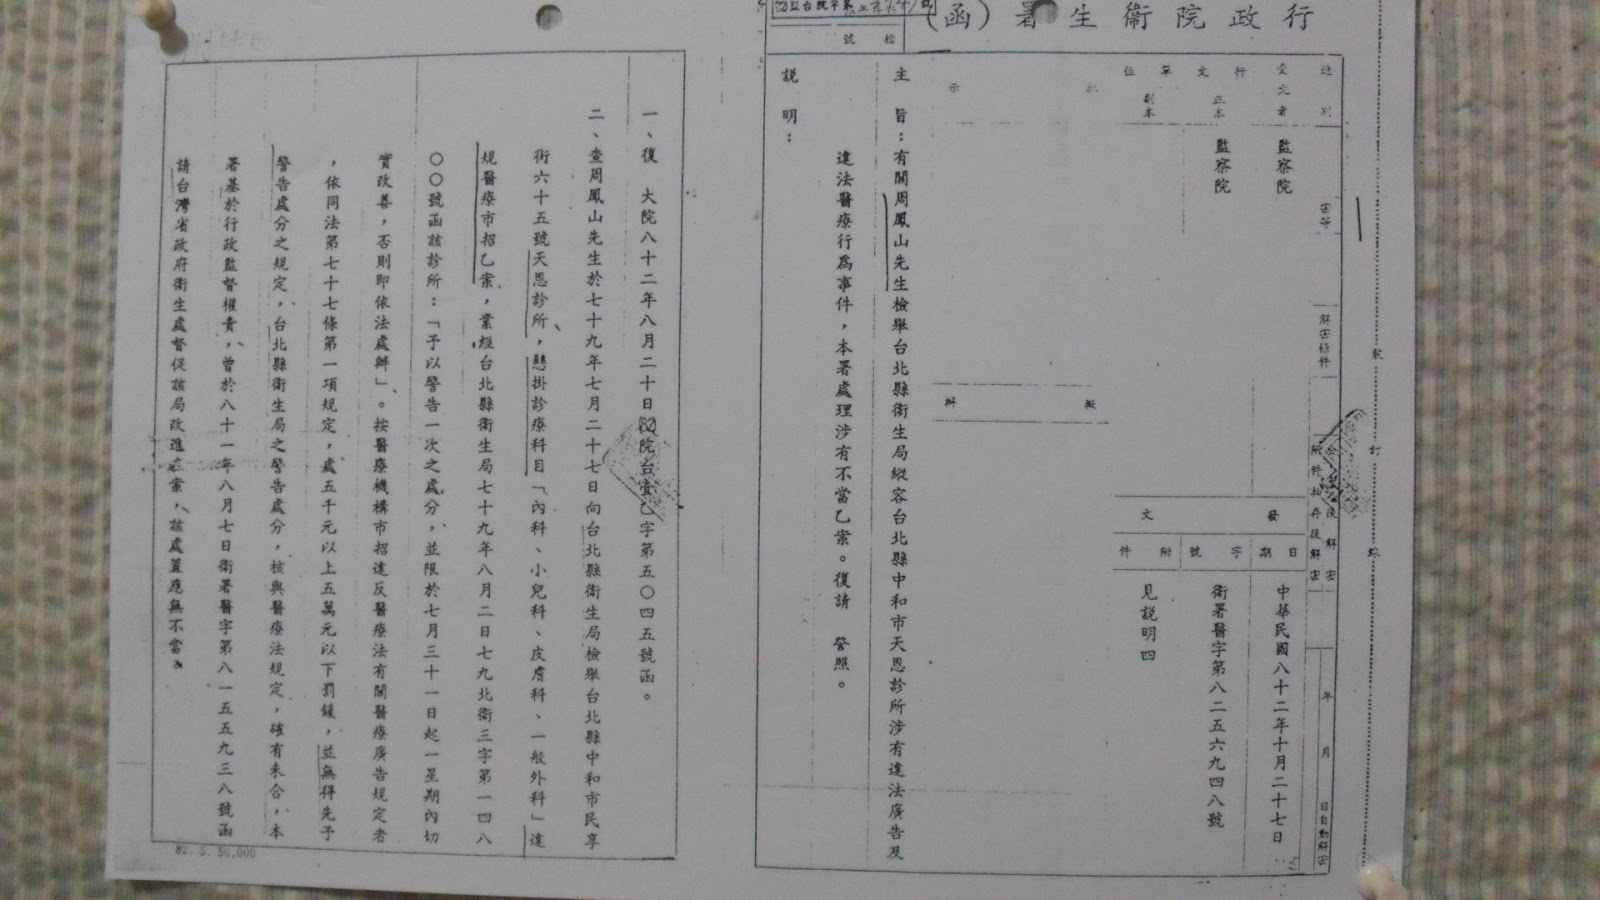 行政院衛生署（函）
檔　號
速別
受文者　監察院
行文單位
正本　監察院
副本
密等
解密條件
附件抽存後解密
年　月　日自動解密
發文
日期　中華民國八十二年十月二十七日
字號　衛署醫字第八二五六九四八號
附件　見説明四
批示
擬辦
主　旨：有關周鳳山先生檢舉台北縣衛生局縱容台北縣中和市天恩診所涉有違法廣告及
違法醫療行為事件，本署處理涉有不當乙案。復請　詧照。
説　明：
一、復　大院八十二年八月二十日(82)院台壹乙字第五〇四五號函。
二、查周鳳山先生於七十九年七月二十七日向台北縣衛生局檢舉台北縣中和市民享
街六十五號天恩診所，懸掛診療科目「內科、小兒科、皮膚科、一般外科」違
規醫療市招乙案，業經台北縣衛生局七十九年八月二日七九北衛三字第一四八
〇〇號函該診所：「予以警告一次之處分，並限於七月三十一日起一星期內切
實改善，否則即依法處辦」。按醫療機構市招違反醫療法有關醫療廣告規定者
，依同法第七十七條第一項規定，處五千元以上五萬元以下罰鍰，並無得先予
警告處分之規定，台北縣衛生局之警告處分，核與醫療法規定，確有未合，本
署基於行政監督權責，曾於八十一年八月七日衛署醫字第八一五五九三八號函
請台灣省政府衛生處督促該局改進在案，該處置應無不當。
82. 5. 50,000
裝
訂
線